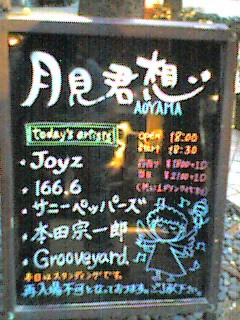 月見君想
AOYAMA
today's artists
open 18:00
start 18:30
・Joyz
・166.6
・サニーペッパーズ
・本田宗一郎
・Grooveyard
本日はスタンディングです。
再入場不可となっております。ご了承下さい